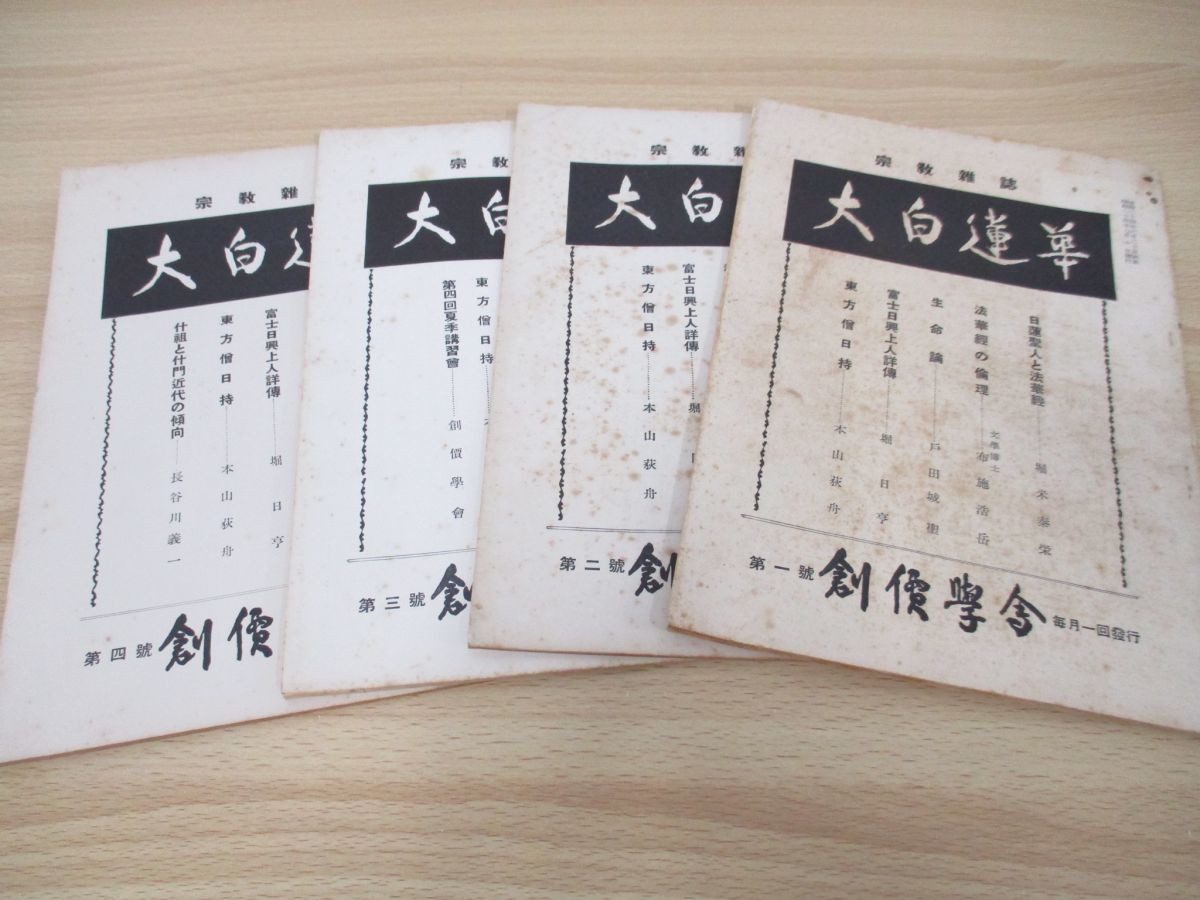 宗教雜誌
大白蓮華
日蓮聖人と法華經……堀米泰栄
法華經の倫理……文學博士 布施浩岳
生命論……戸田城聖
富士日興上人詳傳……堀日亨
東方僧日持……本山荻舟
第一號
創價學會
毎月一回發行
宗教雜
大白
富士日興上人詳傳……堀
東方僧日持……本山荻舟
第二號
創
宗教
大白
東方僧日持……
第四回夏季講習會……創價學會
第三號
創
宗教雜
大白蓮
富士日興上人詳傳……堀日亨
東方僧日持……本山荻舟
什祖と什門近代の傾向……長谷川義一
第四號
創價